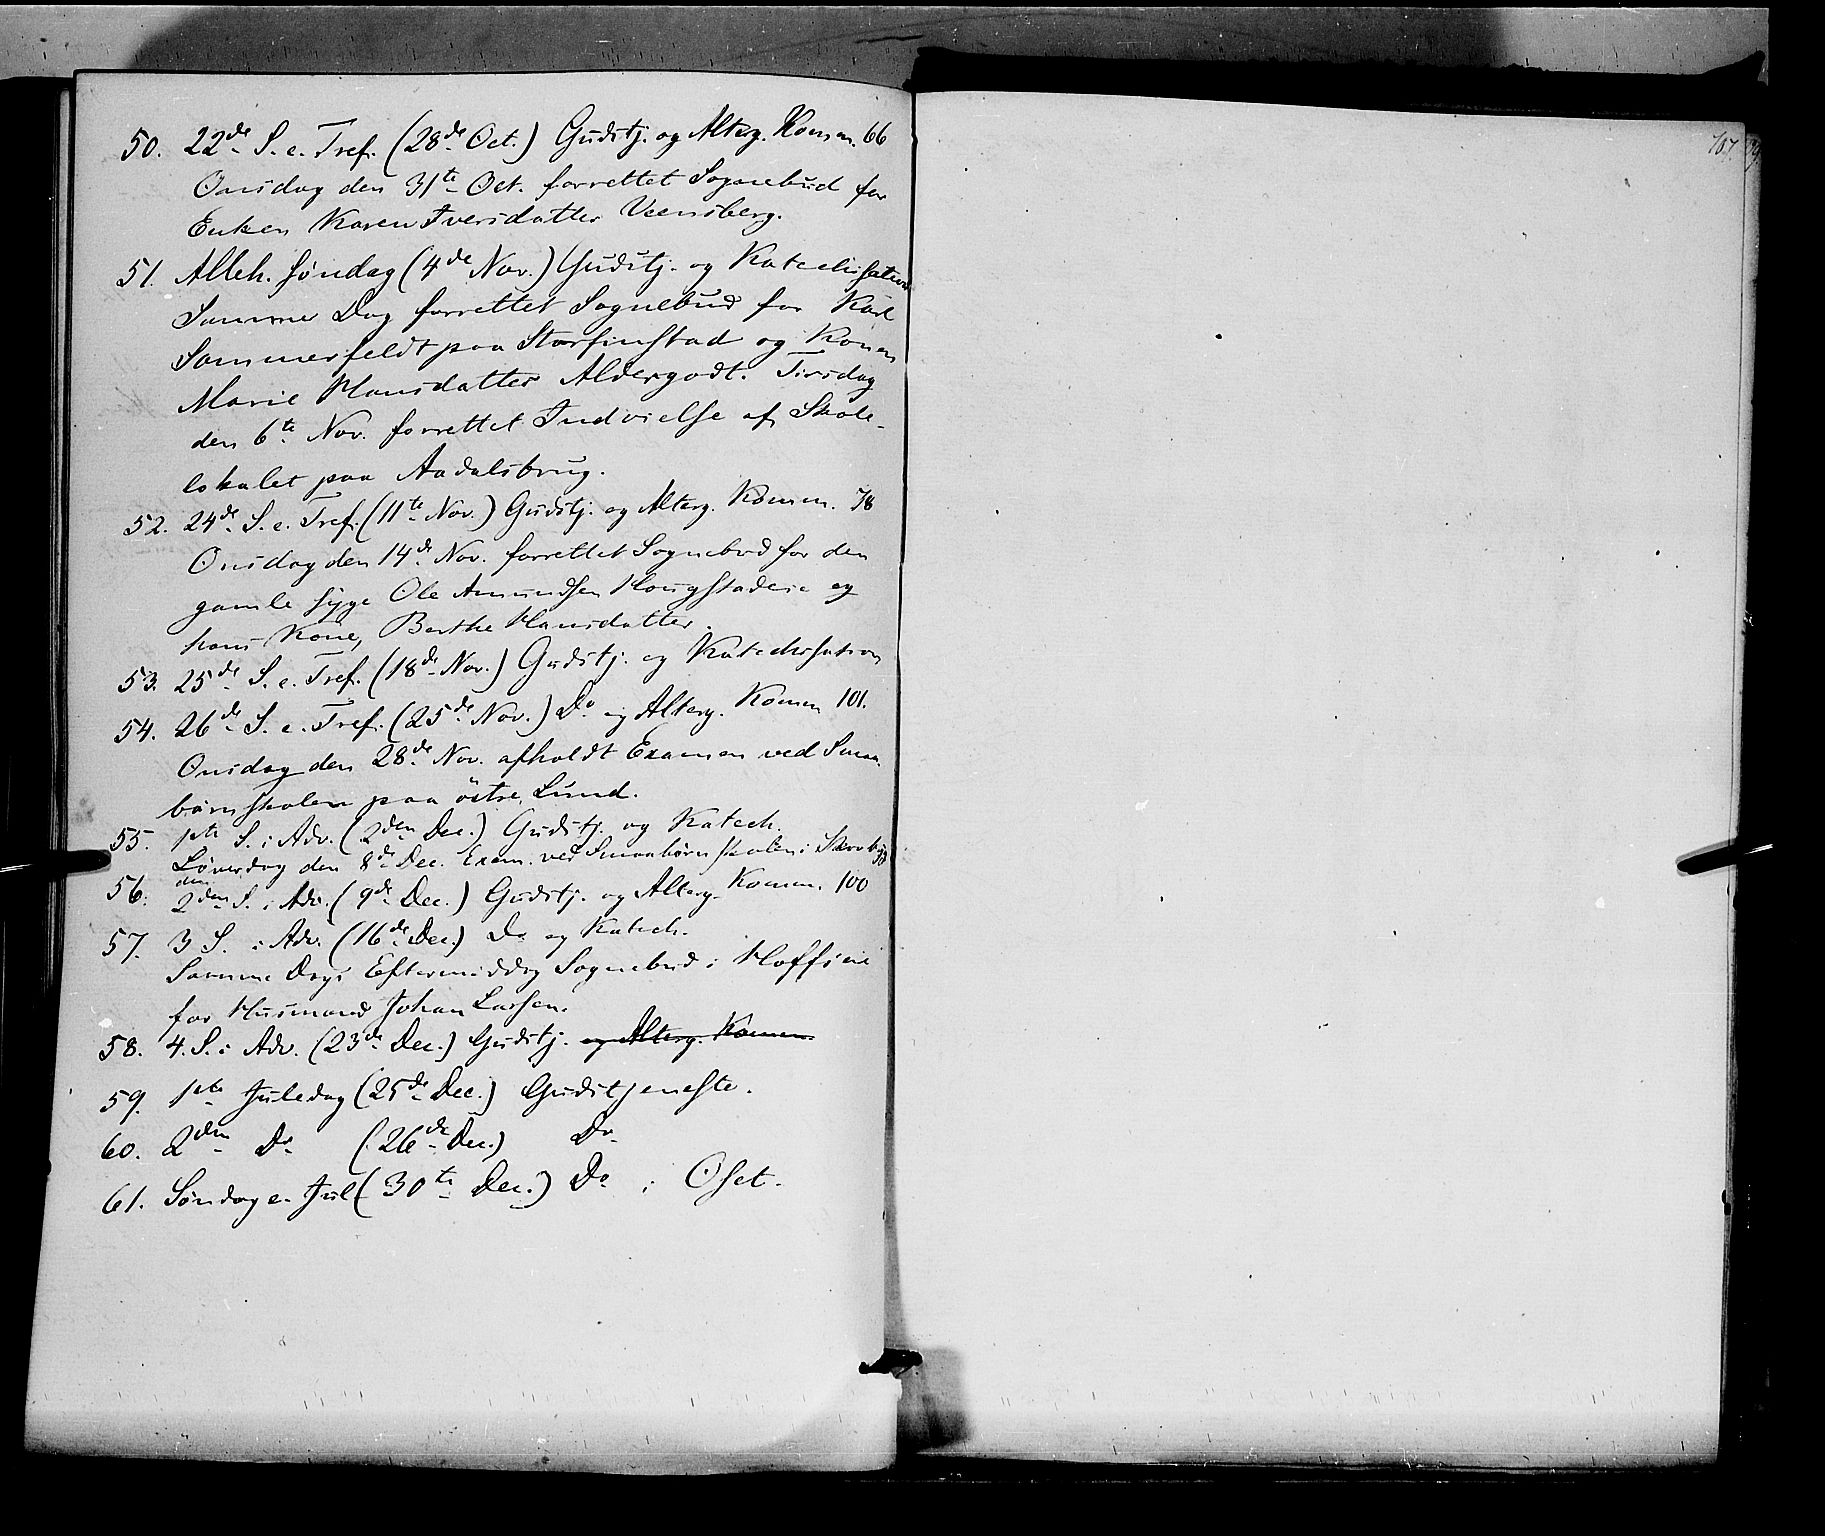 50. 22de S. e. Tref. (28de Oct.) Gudstj. og Alterg. Komm. 66
Onsdag den 31te Oct. forrettet Sognebud for
Enken Karen Iversdatter Veensberg.
51. Alleh. Søndag (4de Nov.) Gudstj. og Katechisation
Samme Dag forrettet Sognebud for Karl
Sommerfeldt paa Storfinstad og Konen
Marie Hansdatter Aldergodt. Tirsdag
den 6te Nov. forrettet Indvielse af Skole-
lokalet paa Aadalsbrug.
52. 24de S. e. Tref. (11te Nov.) Gudstj. og Alterg. Komm. 78
Onsdag den 14de Nov. forrettet Sognebud for den
gamle syge Ole Amundsen Hougstadeie og
hans Kone, Berthe Hansdatter.
53. 25de S. e. Tref. (18de Nov.) Gudstj. og Katechisation
54. 26de S. e. Tref. (25de Nov.) Do og Alterg. Komm 101.
Onsdag den 28de Nov. afholdt Examen ved Smaa-
børnskolen paa östre Lund.
55. 1ste S. i Adv. (2den Dec.) Gudstj. og Katech.
Løverdag den 8de Dec. Exam. ved Smaabørnskolen i
56. 2den S. i Adv. (9de Dec.) Gudstj. og Alterg. Komm. 100
57. 3 S. i Adv. (16de Dec.) Do og Katech.
Samme Dags Eftermiddag Sognebud i Hoffseie
for Husmand Johan Larsen.
58. 4. S. i Adv. (23de Dec.) Gudstj. og Alterg. Komm.
59. 1ste Juledag (25de Dec.) Gudstjeneste.
60. 2den Do (26de Dec.) Do
61. Søndag e. Jul (30te Dec.) Do i Oset.
107.